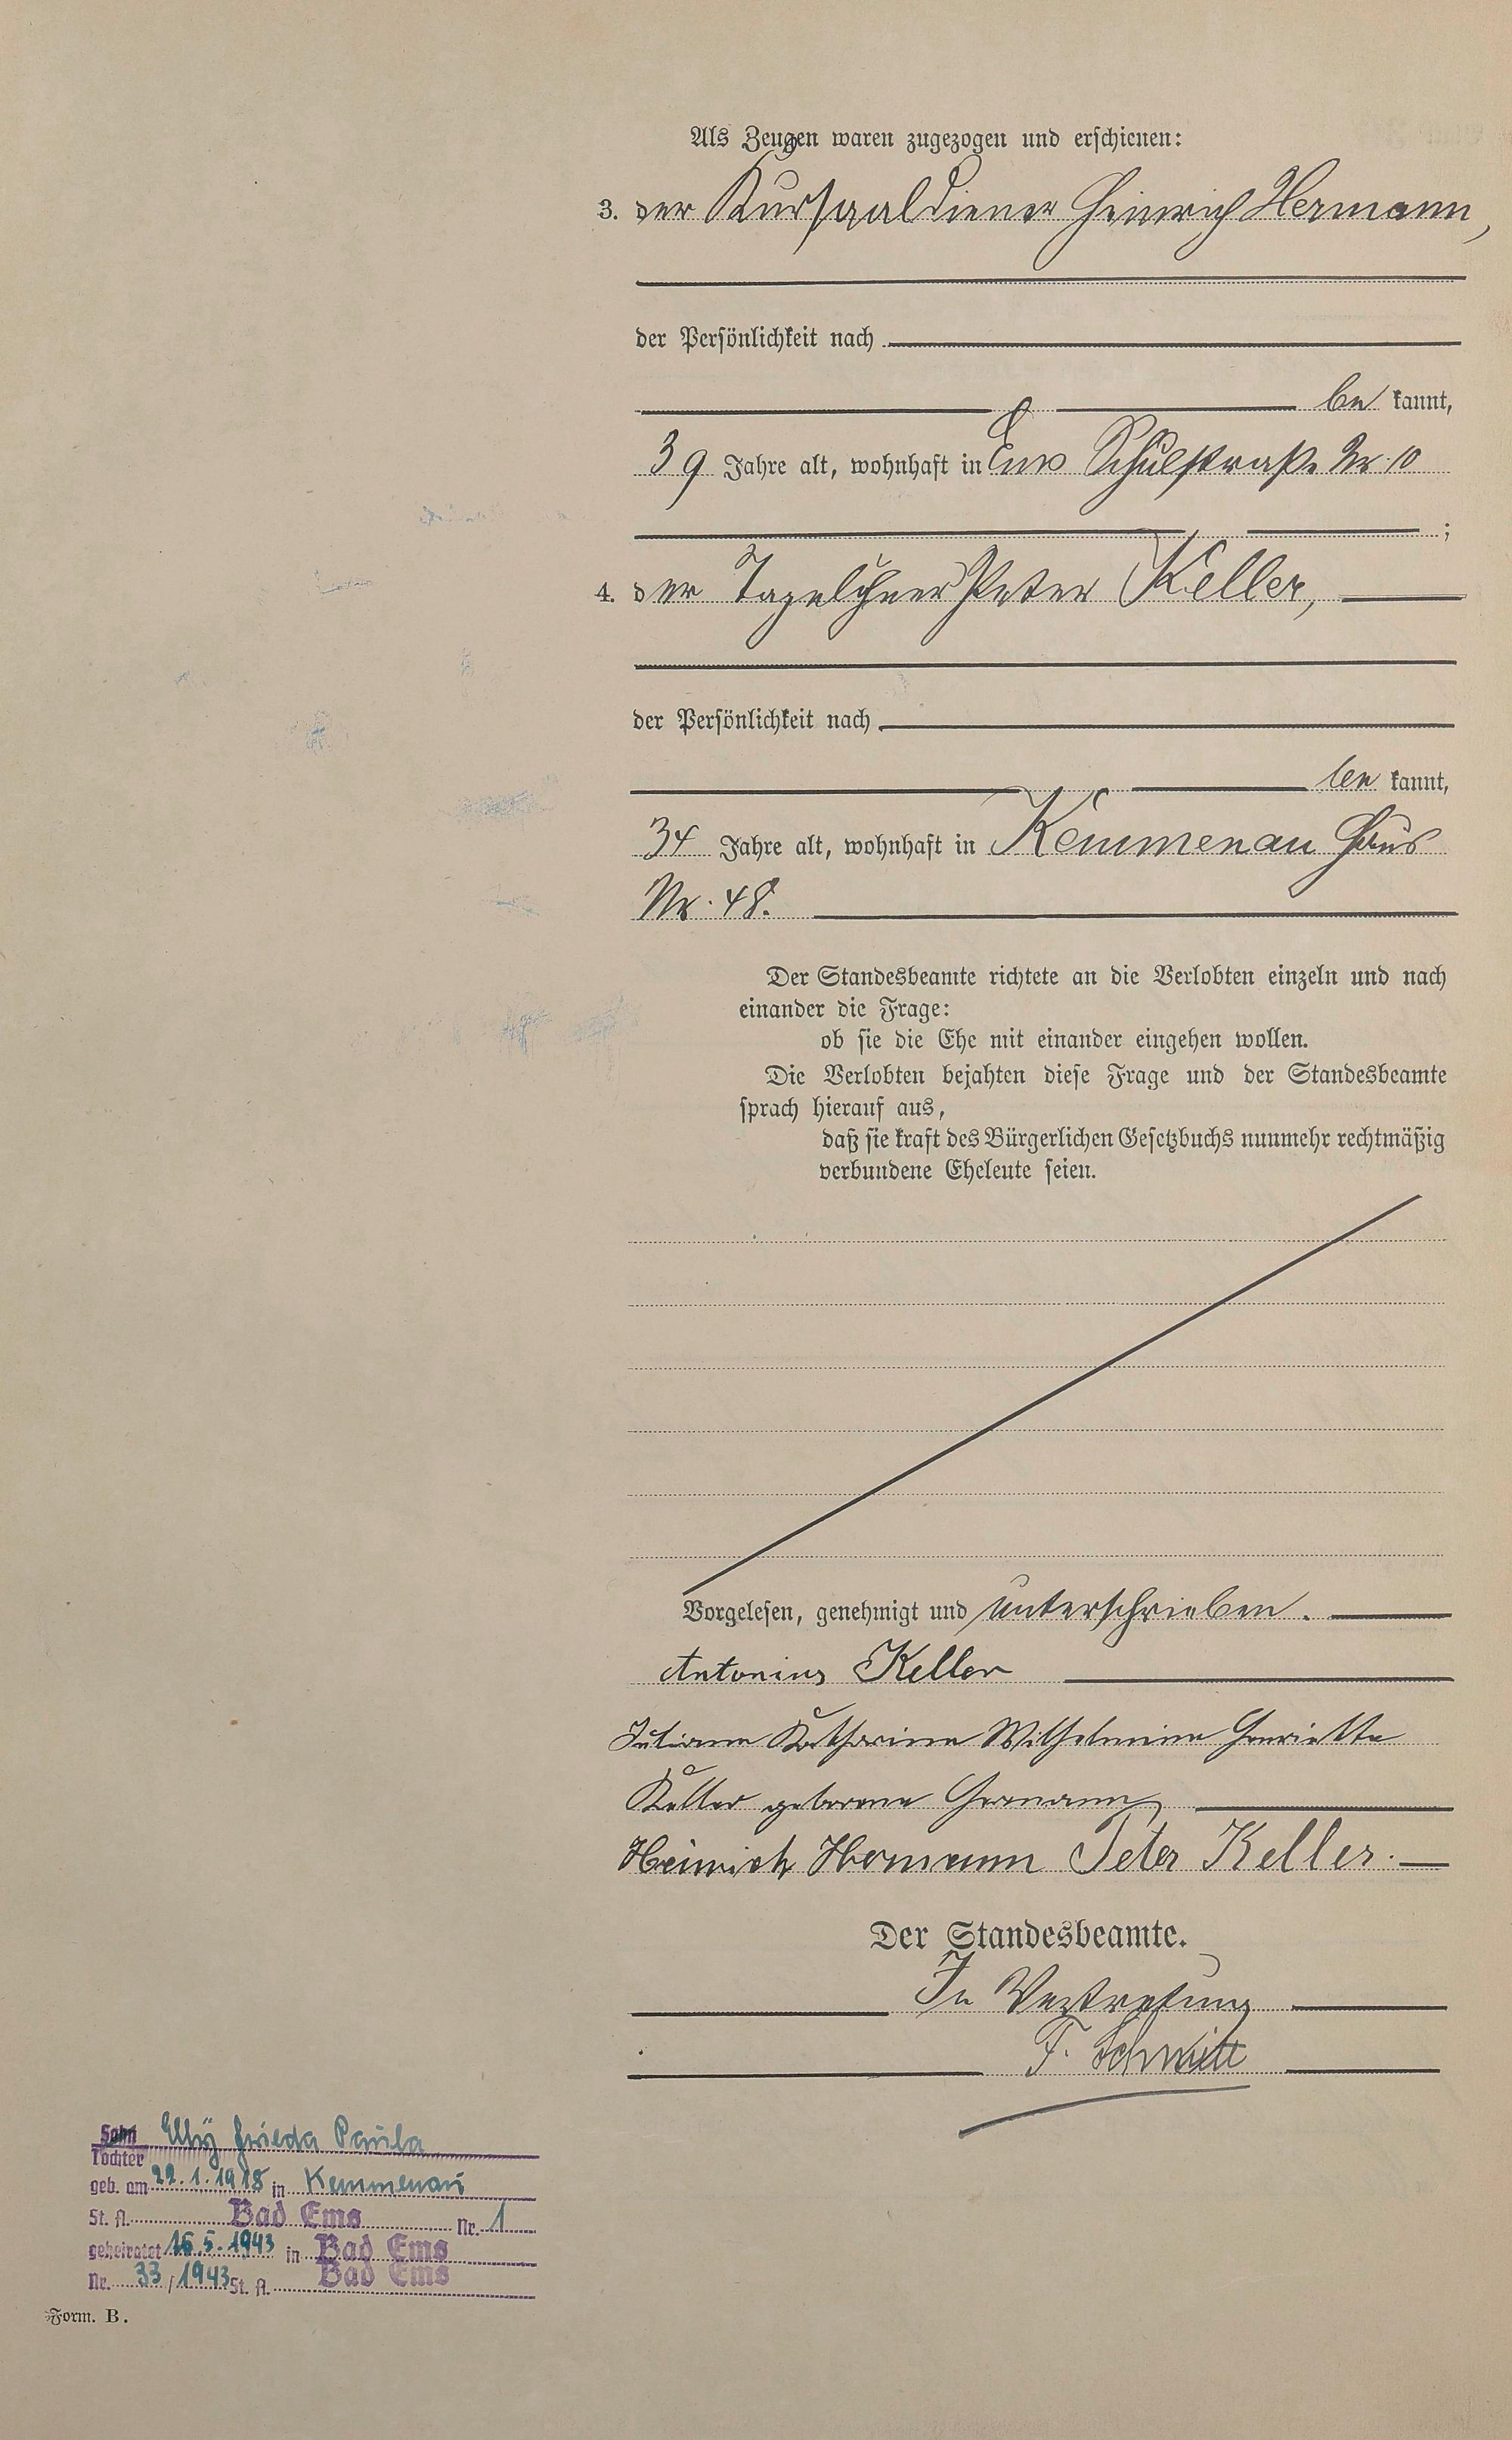 Als Zeugen waren zugezogen und erschienen:
3. der Kursaaldiener Heinrich Hermann,
der Persönlichkeit nach
be kannt,
39 Jahre alt, wohnhaft in Ems Schulstraße Nr. 10
;
4. der Tagelöhner Peter Keller,
der Persönlichkeit nach
be kannt,
34 Jahre alt, wohnhaft in Kemmenau Haus
Nr. 48.
Der Standesbeamte richtete an die Verlobten einzeln und nach
einander die Frage:
ob sie die Ehe mit einander eingehen wollen.
Die Verlobten bejahten diese Frage und der Standesbeamte
sprach hierauf aus,
daß sie kraft des Bürgerlichen Gesetzbuchs nunmehr rechtmäßig
verbundene Eheleute seien.
Vorgelesen, genehmigt und unterschrieben.
Antonius Keller
Juliane Katharina Wilhelmine Henriette
Keller geborene Hermann
Heinrich Hermann Peter Keller.
Der Standesbeamte.
In Vertretung
F. Schmitt
Sohn
Tochter Elly Frieda Paula
geb. am 22.1.1918 in Kemmenau
St. A. Bad Ems Nr. 1
geheiratet 16.5.1943 in Bad Ems
Nr. 33/1943 St. A. Bad Ems
Form. B.